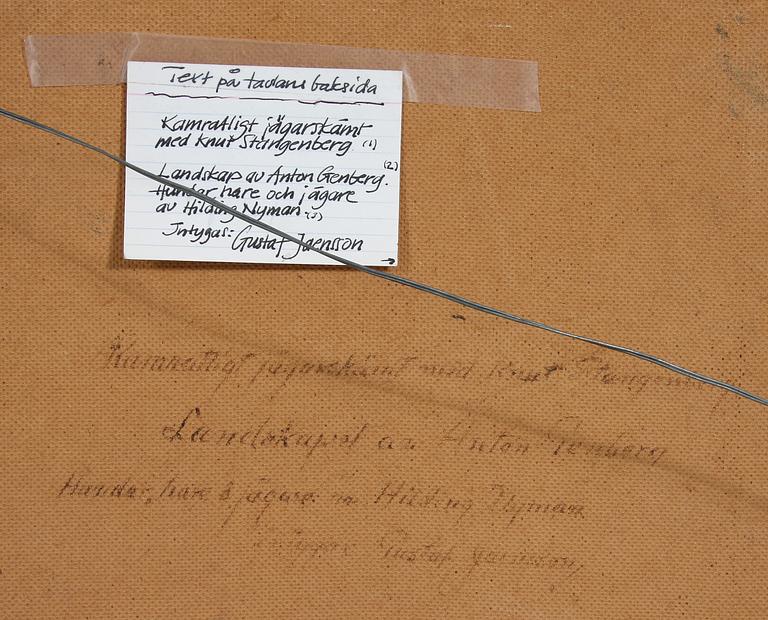 Text på tavlans baksida
Kamratligt jägarskämt
med Knut Stangenberg (1)
(2)
Landskap av Anton Genberg.
Hundar hare och jägare
av Hilding Nyman (3)
Intygas: Gustaf Jaensson
→
Kamratligt jägarskämt med Knut Stangenberg
Landskapet av Anton Genberg
Hundar, hare & jägare av Hilding Nyman
Gustaf Jaensson